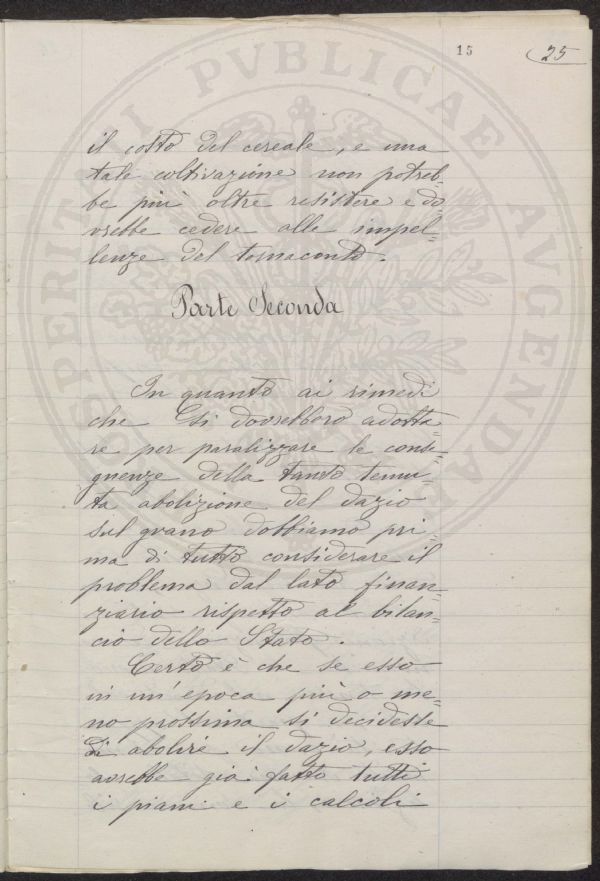 15
25
il costo del cereale, e una
tale coltivazione non potreb=
be più oltre resistere e do=
vrebbe cedere alle impel=
lenze del tornaconto.
Parte Seconda
In quanto ai rimedi
che si dovrebbero adotta=
re per paralizzare le conse=
guenze della tanto temu=
ta abolizione del dazio
sul grano dobbiamo pri=
ma di tutto considerare il
problema dal lato finan=
ziario rispetto al bilan=
cio dello Stato.
Certo è che se esso
in un'epoca più o me=
no prossima si decidesse
di abolire il dazio, esso
avrebbe già fatto tutti
i piani e i calcoli
PVBLICAE AVGENDAE
SPERITATI